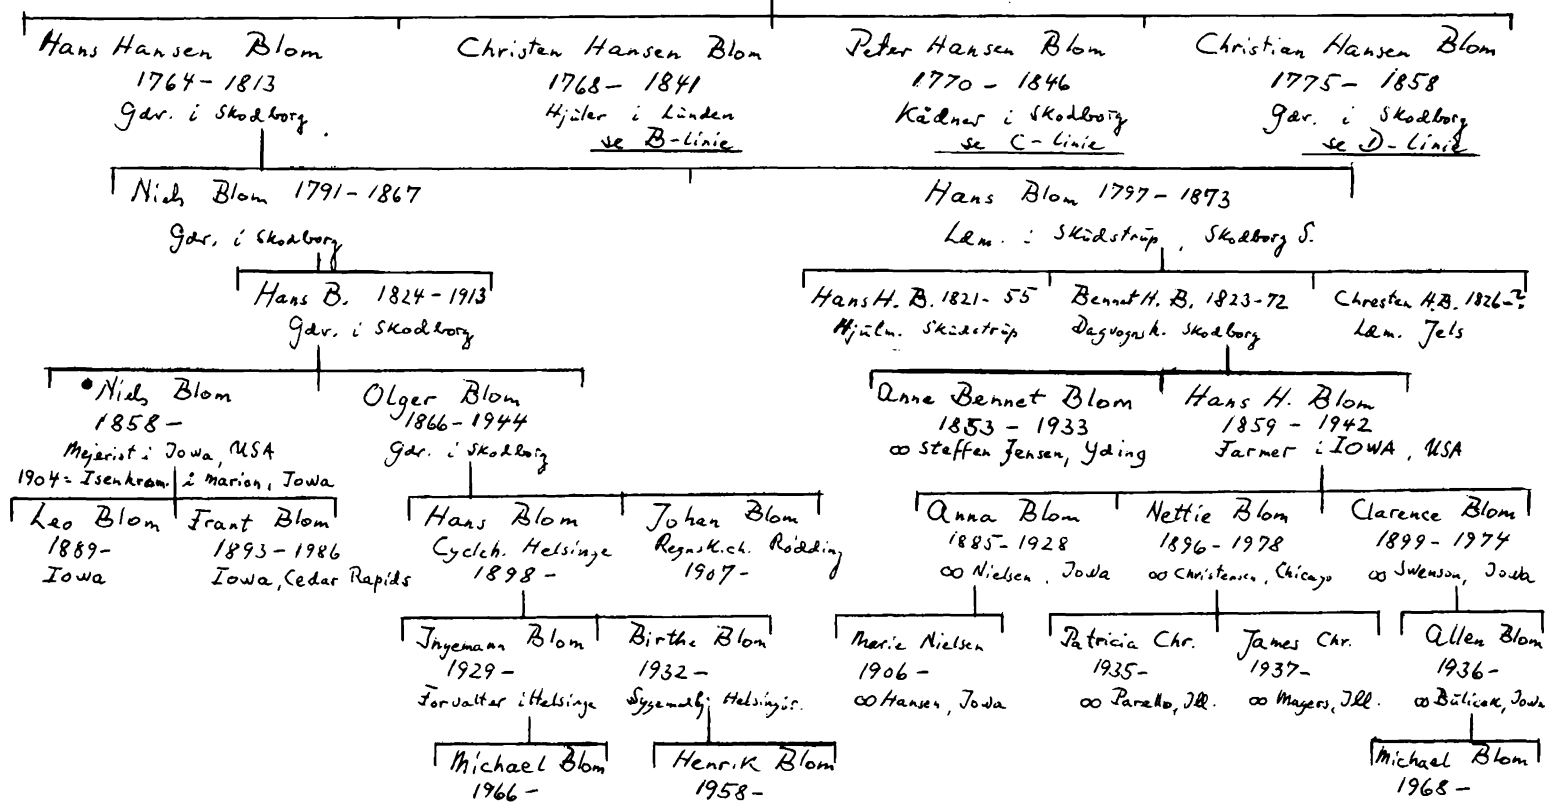 Hans Hansen Blom
1764 - 1813
Gdr. i Skodborg.
Christen Hansen Blom
1768 - 1841
Hjüler i Lünden
se B-Linie
Peter Hansen Blom
1770 - 1846
Kådner i Skodborg
se C-Linie
Christian Hansen Blom
1775 - 1858
Gdr. i Skodborg
se D-Linie
Niels Blom 1791 - 1867
Gdr. i Skodborg
Hans Blom 1797 - 1873
Ldm. i Sküdstrüp, Skodborg S.
Hans B. 1824 - 1913
Gdr. i Skodborg
Hans H. B. 1821 - 55
Hjülm. Sküdstrüp
Bennet H. B. 1823 - 72
Dagvognsk. Skodborg
Chresten H.B. 1826 - ?
Ldm. Jels
Niels Blom
1858 -
Mejerist i Iowa, USA
1904 = Isenkram. i Marion, Iowa
Olger Blom
1866 - 1944
Gdr. i Skodborg
Anne Bennet Blom
1853 - 1933
∞ Steffen Jensen, Yding
Hans H. Blom
1859 - 1942
Farmer i IOWA, USA
Leo Blom
1889 -
Iowa
Frant Blom
1893 - 1986
Iowa, Cedar Rapids
Hans Blom
Cyclch. Helsinge
1898 -
Johan Blom
Regnsk.ch. Rødding
1907 -
Anna Blom
1885 - 1928
∞ Nielsen, Iowa
Nettie Blom
1896 - 1978
∞ Christensen, Chicago
Clarence Blom
1899 - 1974
∞ Swenson, Iowa
Ingemann Blom
1929 -
Forvalter i Helsinge
Birthe Blom
1932 -
Helsingör.
Marie Nielsen
1906 -
∞ Hansen, Iowa
Patricia Chr.
1935 -
∞ Parello, Ill.
James Chr.
1937 -
∞ Mayers, Ill.
Allen Blom
1936 -
∞ Bülicek, Iowa
Michael Blom
1966 -
Henrik Blom
1958 -
Michael Blom
1968 -